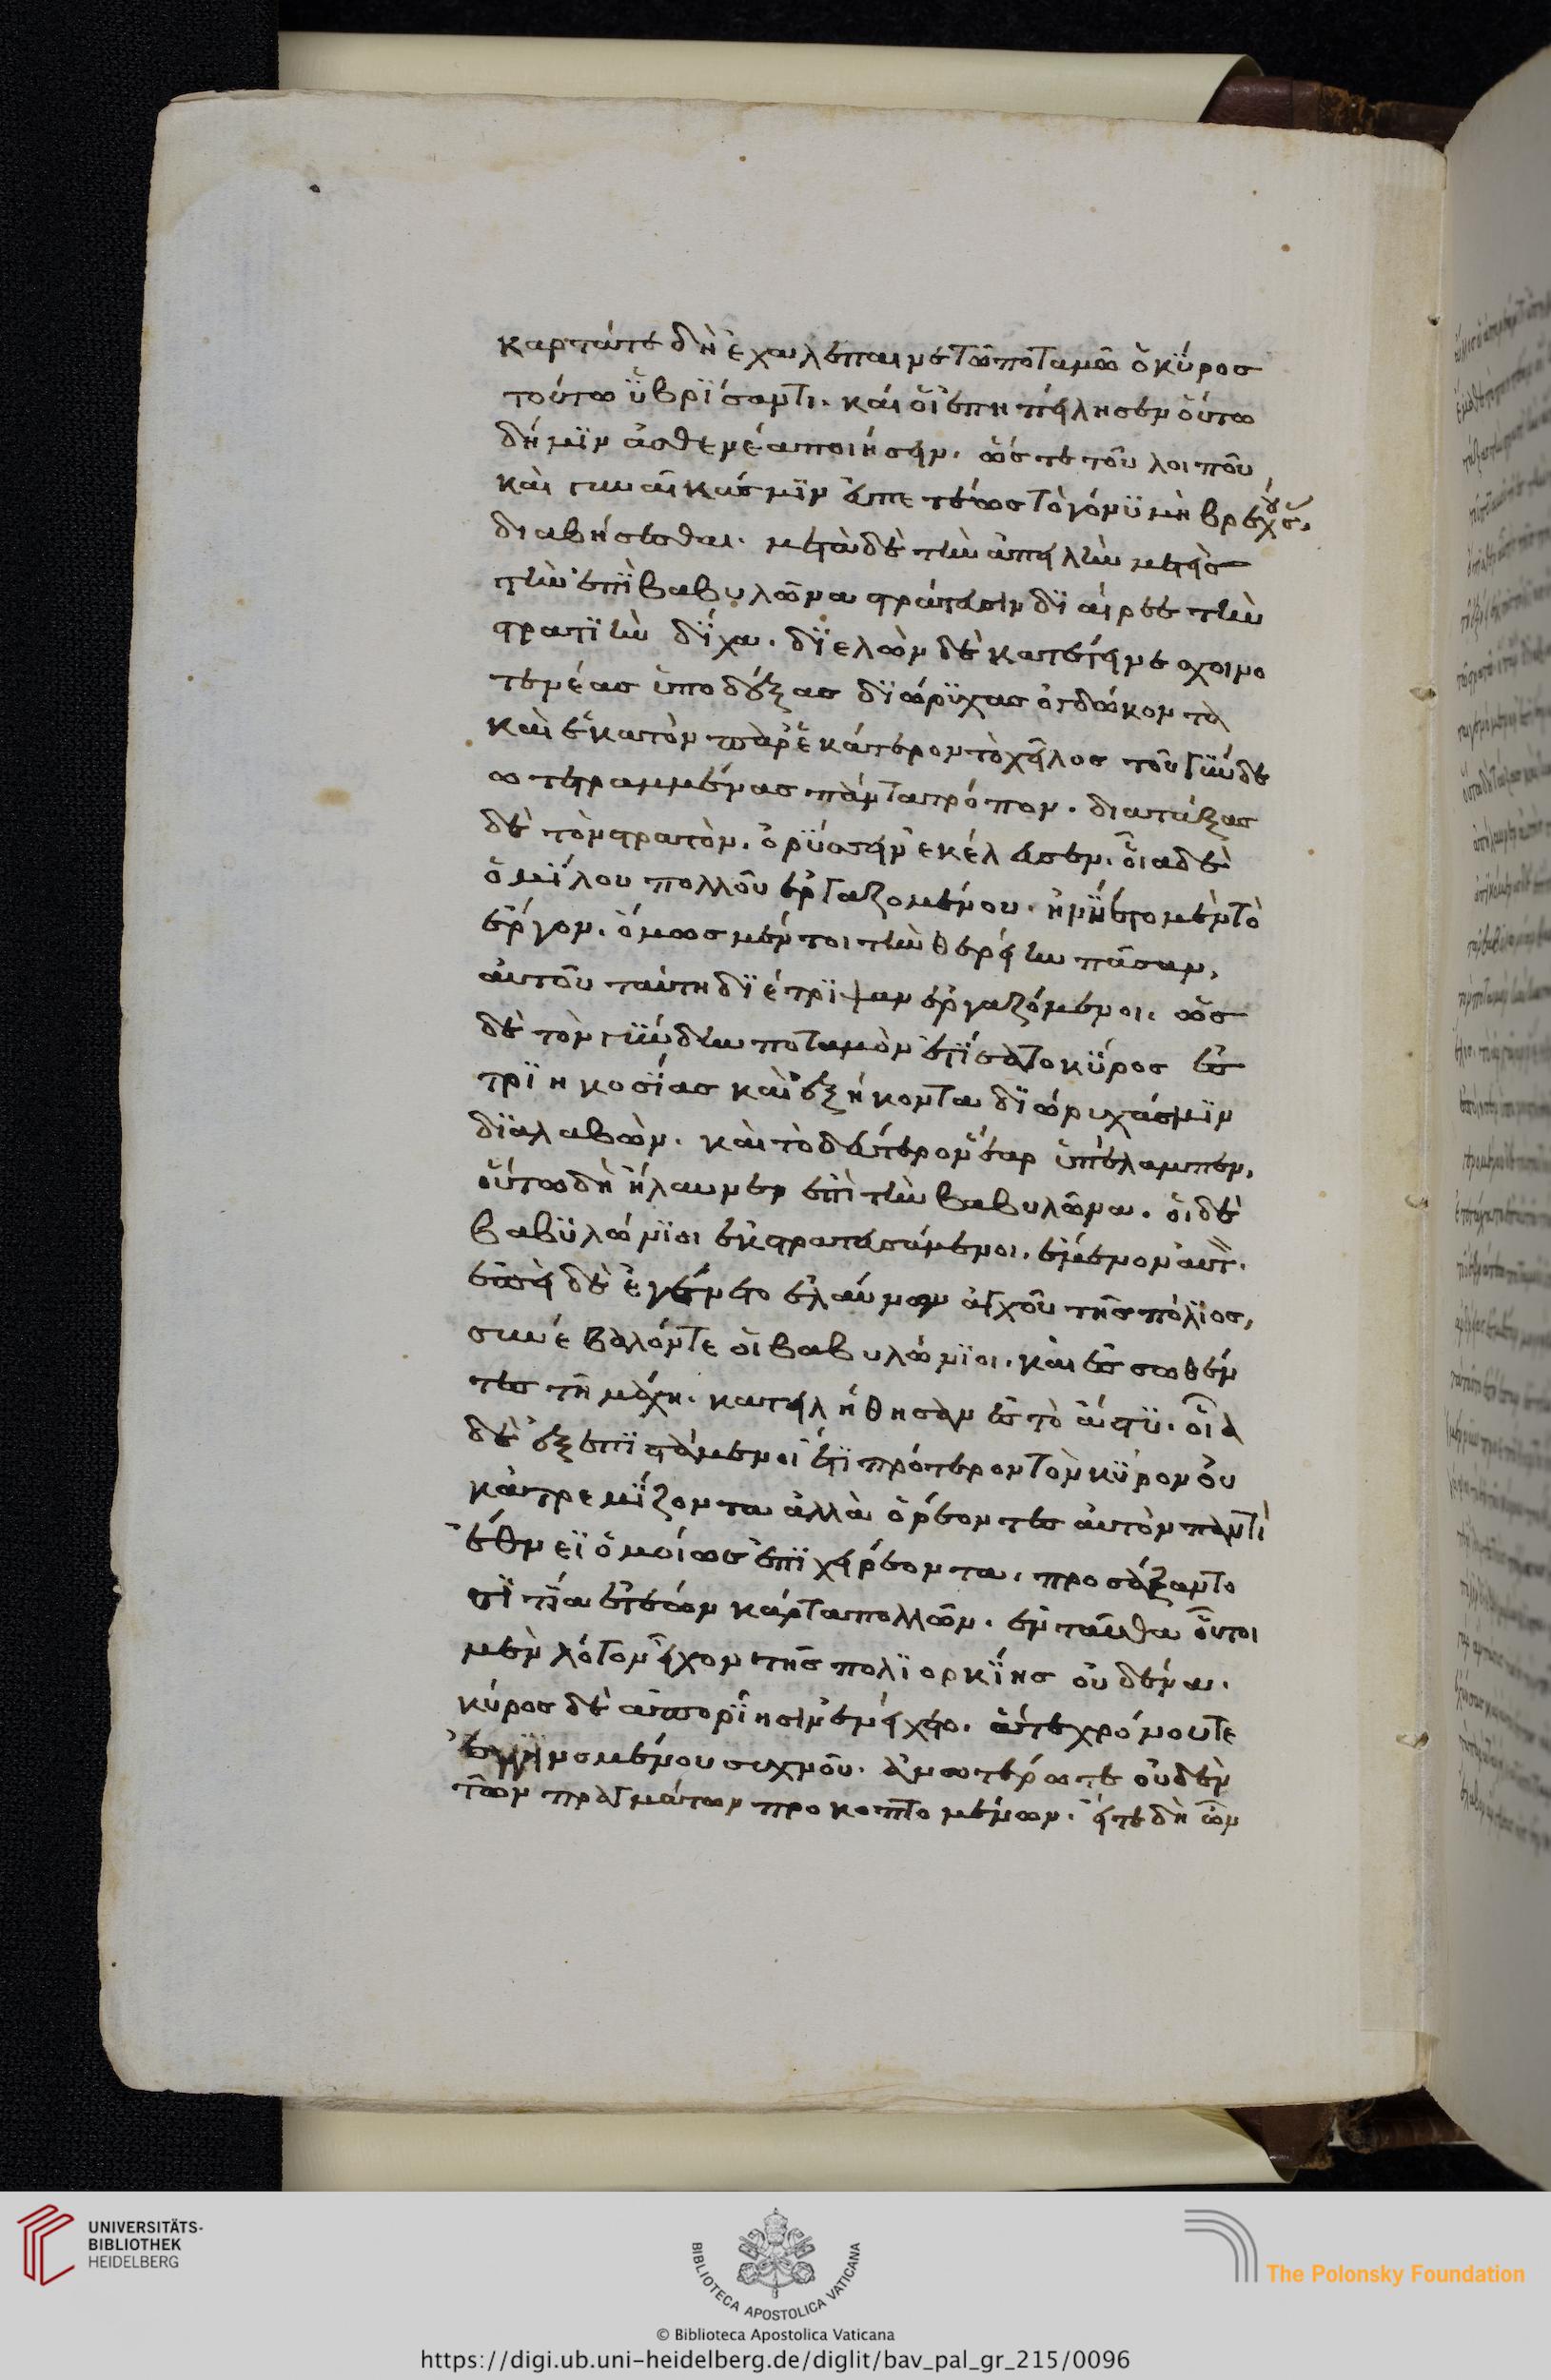 κάρτάτε δὴ ἐχαλέπαινε τῶ ποταμῶ ὁ κῦρος
τούτω ὑβρίσαντι. καί οἱ ἐπηπείλησεν οὕτω
δή μιν ἀσθενέα ποιήσειν. ὥστε τοῦ λοιποῦ
καὶ γυναῖκάς μιν εὐπετέως τὸ γόνυ μὴ βρεχούσ.
διαβήσεσθαι. μετὰ δὲ τὴν ἀπειλὴν μετεὶς
τὴν ἐπὶ βαβυλῶνα στράτευσιν διαίρεε τὴν
στρατιὴν δίχα. διελὼν δὲ κατέτεινε σχοινο
τενέας ὑποδέξας διώρυχας ὀγδώκοντα
καὶ ἑκατὸν παρ' ἑκάτερον τὸ χεῖλος τοῦ γύνδε
ω τετραμμένας πάντα τρόπον. διατάξας
δὲ τὸν στρατὸν. ὀρύσσειν ἐκέλευσεν. οἷα δὲ
ὁμίλου πολλοῦ ἐργαζομένου. ἠνύετο μὲν τὸ
ἔργον. ὅμως μέντοι τὴν θερείην πᾶσαν,
αὐτοῦ ταύτη διέτριψαν ἐργαζόμενοι. ὡς
δὲ τὸν γύνδην ποταμὸν ἐτίσατο κῦρος ἐς
τριηκοσίας καὶ ἑξήκοντα διώρυχάς μιν
διαλαβών. καὶ τὸ δεύτερον ἔαρ ὑπέλαμπεν,
οὕτω δὴ ἤλαυνεν ἐπὶ τὴν βαβυλῶνα. οἱ δὲ
βαβυλώνιοι ἐκστρατευσάμενοι. ἔμενον αὐτ.
ἐπεὶ δὲ ἐγένετο ἐλαύνων ἀγχοῦ τῆς πόλιος,
συνέβαλόντε οἱ βαβυλώνιοι. καὶ ἑσσωθέν
τες τῆ μάχη. κατειλήθησαν ἐς τὸ ἄστυ. οἷα
δὲ ἐξεπιστάμενοι ἔτι πρότερον τὸν κῦρον οὐ
κ' ἀτρεμίζοντα ἀλλὰ ὀρέοντες αὐτὸν παντὶ
ἔθνεϊ ὁμοίως ἐπιχειρέοντα, προσάξαντο
σιτία ἐτέων κάρτα πολλῶν. ἐνταῦθα οὗτοι
μὲν λόγον εἶχον τῆς πολιορκίης οὐδένα.
κῦρος δὲ ἀπορίησιν ἐνείχετο. ἅτε χρόνου τε
ἐγγινομένου συχνοῦ. ἀνωτέρω τε οὐδὲν
τῶν πραγμάτων προκοπτομένων. εἴτε δὴ ὦν
UNIVERSITÄTS-
BIBLIOTHEK
HEIDELBERG
BIBLIOTECA APOSTOLICA VATICANA
The Polonsky Foundation
© Biblioteca Apostolica Vaticana
https://digi.ub.uni-heidelberg.de/diglit/bav_pal_gr_215/0096